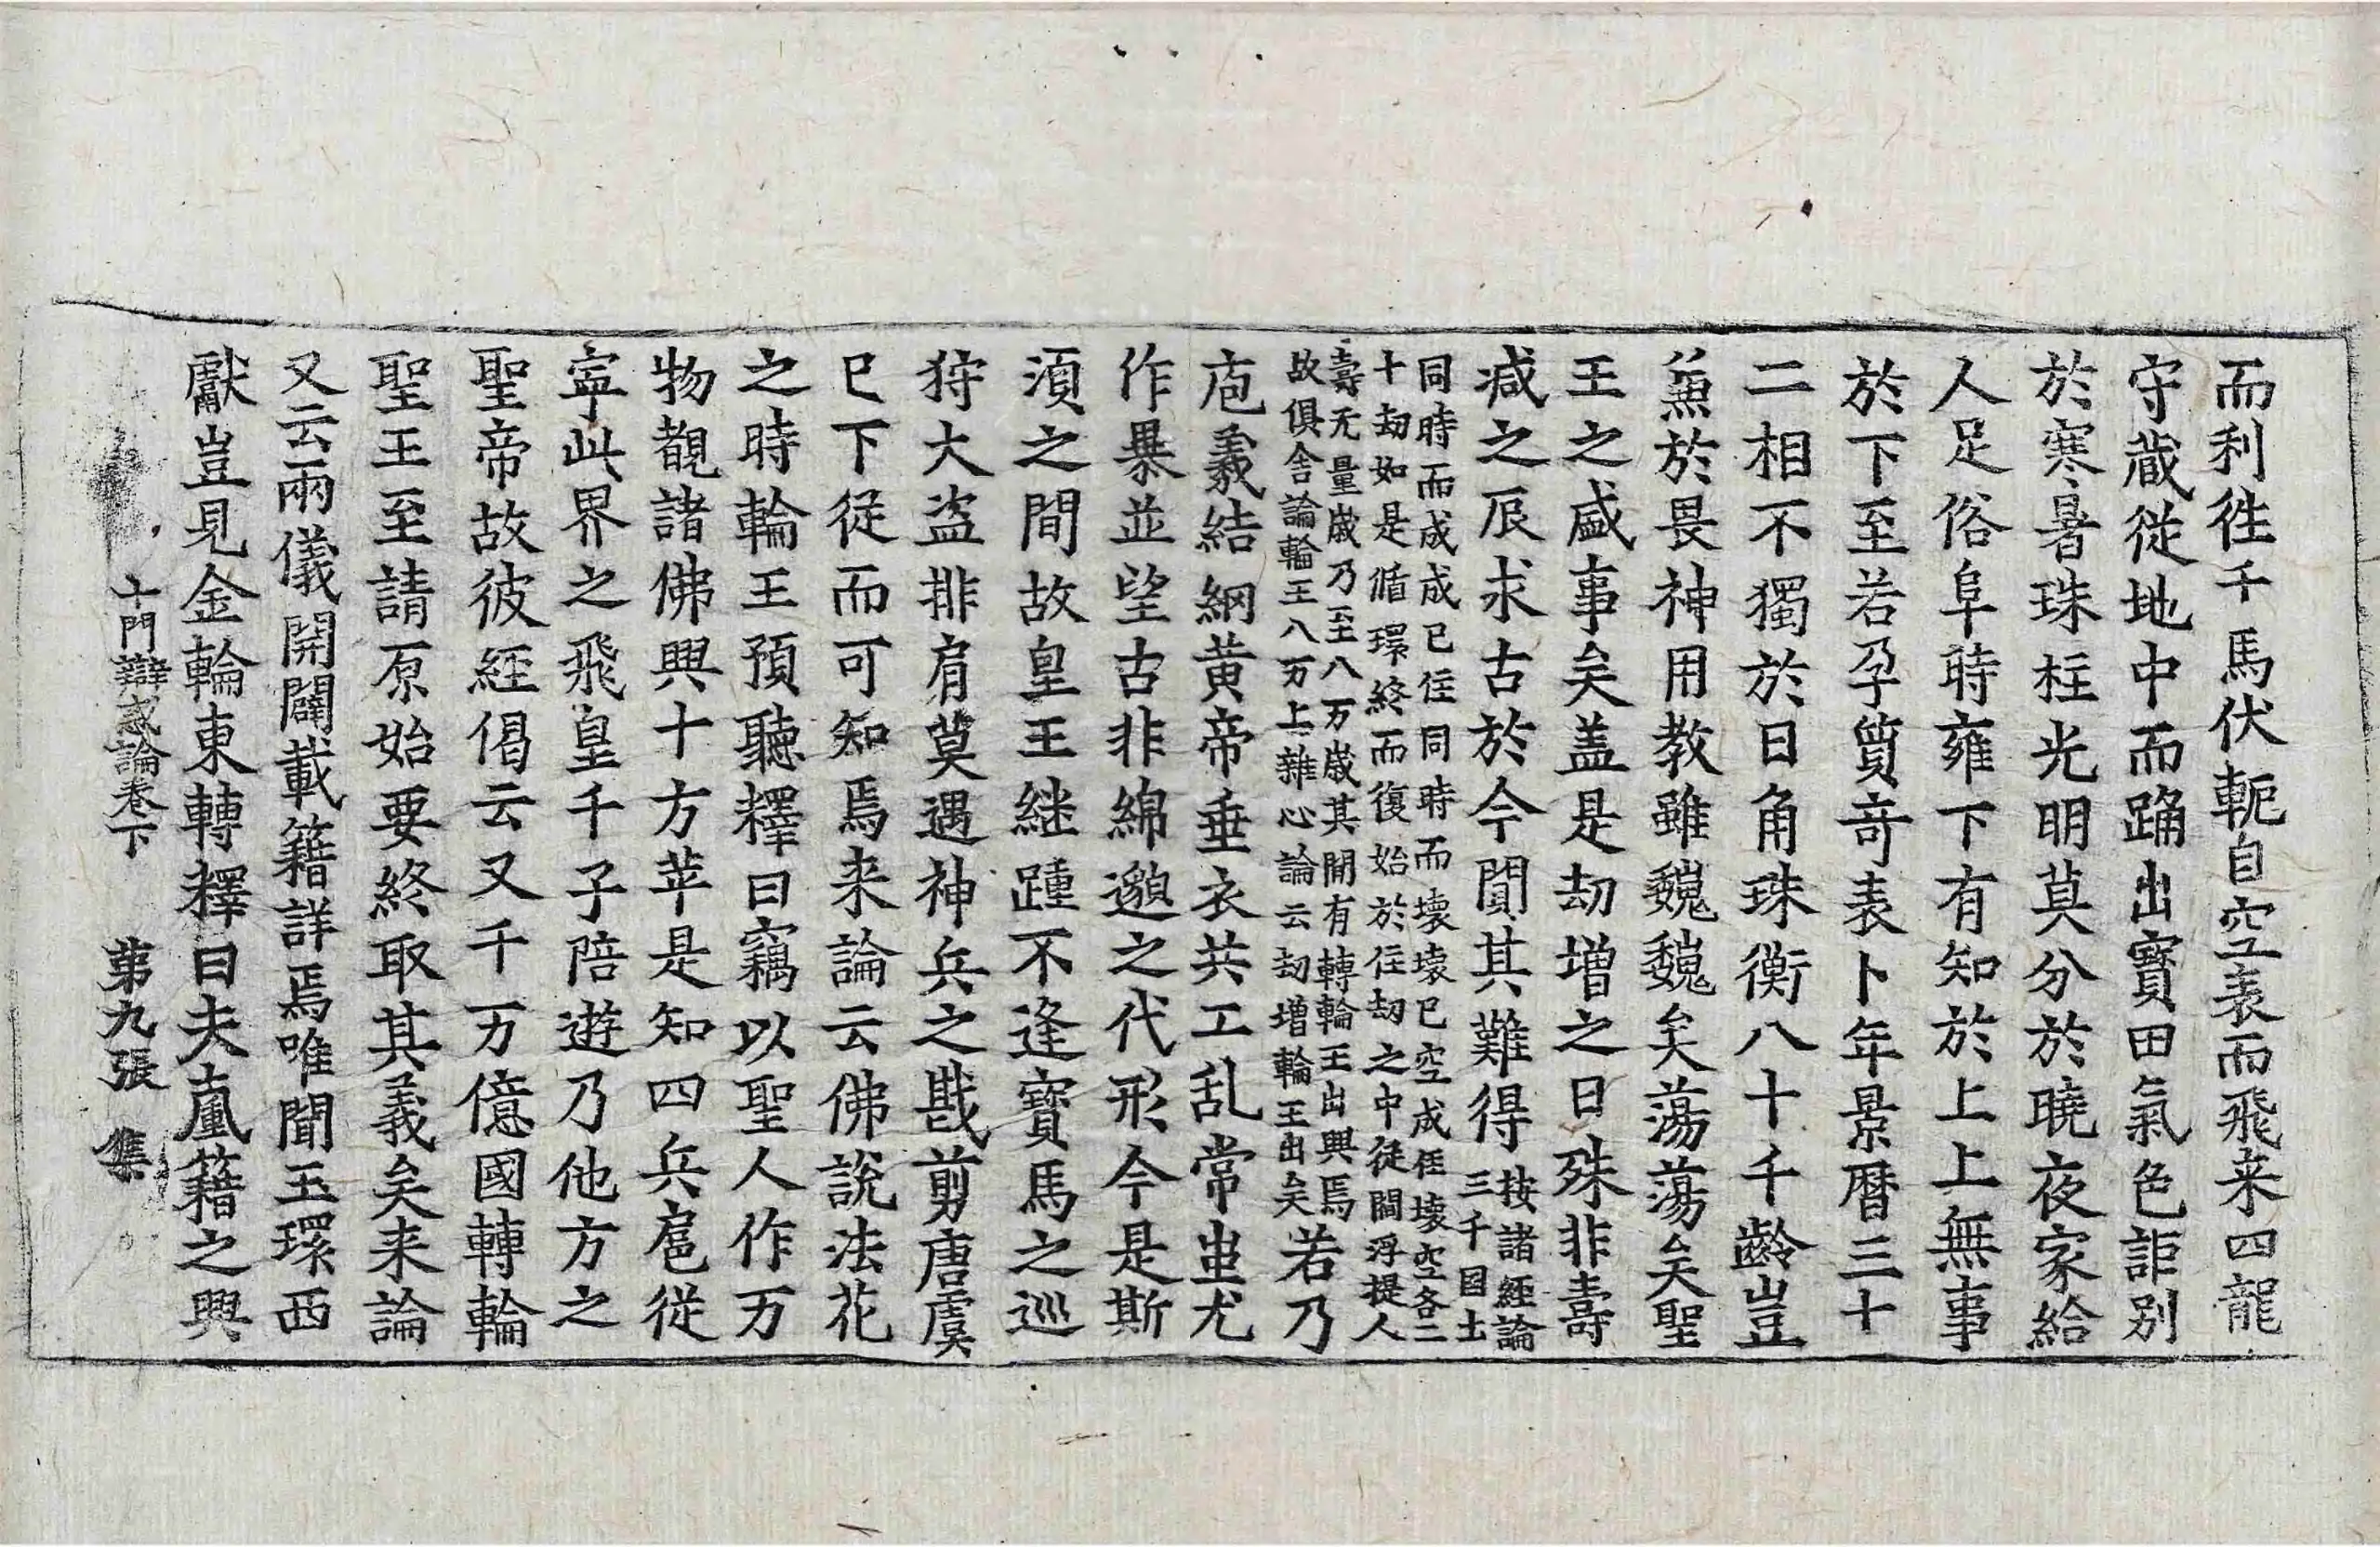 而利徃千馬伏軛自空表而飛来四龍
守蔵從地中而踊出寶田氣色詎别
於寒暑珠柱光明莫分於曉夜家給
人足俗阜時雍下有知於上上無事
於下至若孕質竒表卜年景曆三十
二相不獨於日角珠衡八十千齡豈
𠔥於畏神用教雖魏魏矣蕩蕩矣聖
王之盛事矣盖是劫增之日殊非壽
减之辰求古於今聞其難得按諸經論三千囯土
同時而成成已住同時而壞壞已空成住壞空各二
十劫如是循環終而復始於住劫之中從閻浮提人
壽无量歲乃至八万歲其閒有轉輪王出興焉
故俱舎論輪王八万上雜心論云劫增輪王出矣若乃
庖羲結網黄帝垂衣共工乱常蚩尤
作暴並望古非綿邈之代形今是斯
湏之間故皇王継踵不逢寶馬之巡
狩大盗排肩莫遇神兵之戡剪唐虞
已下從而可知焉来論云佛說法花
之時輪王預聽釋曰竊以聖人作万
物覩諸佛興十方苹是知四兵扈從
寧此界之飛皇千子陪遊乃他方之
聖帝故彼經偈云又千万億國轉輪
聖王至請原始要終取其義矣来論
又云兩儀開闢載籍詳焉唯聞玉環西
獻豈見金輪東轉釋曰夫嵐籍之興
十門辯惑論卷下　第九張　集